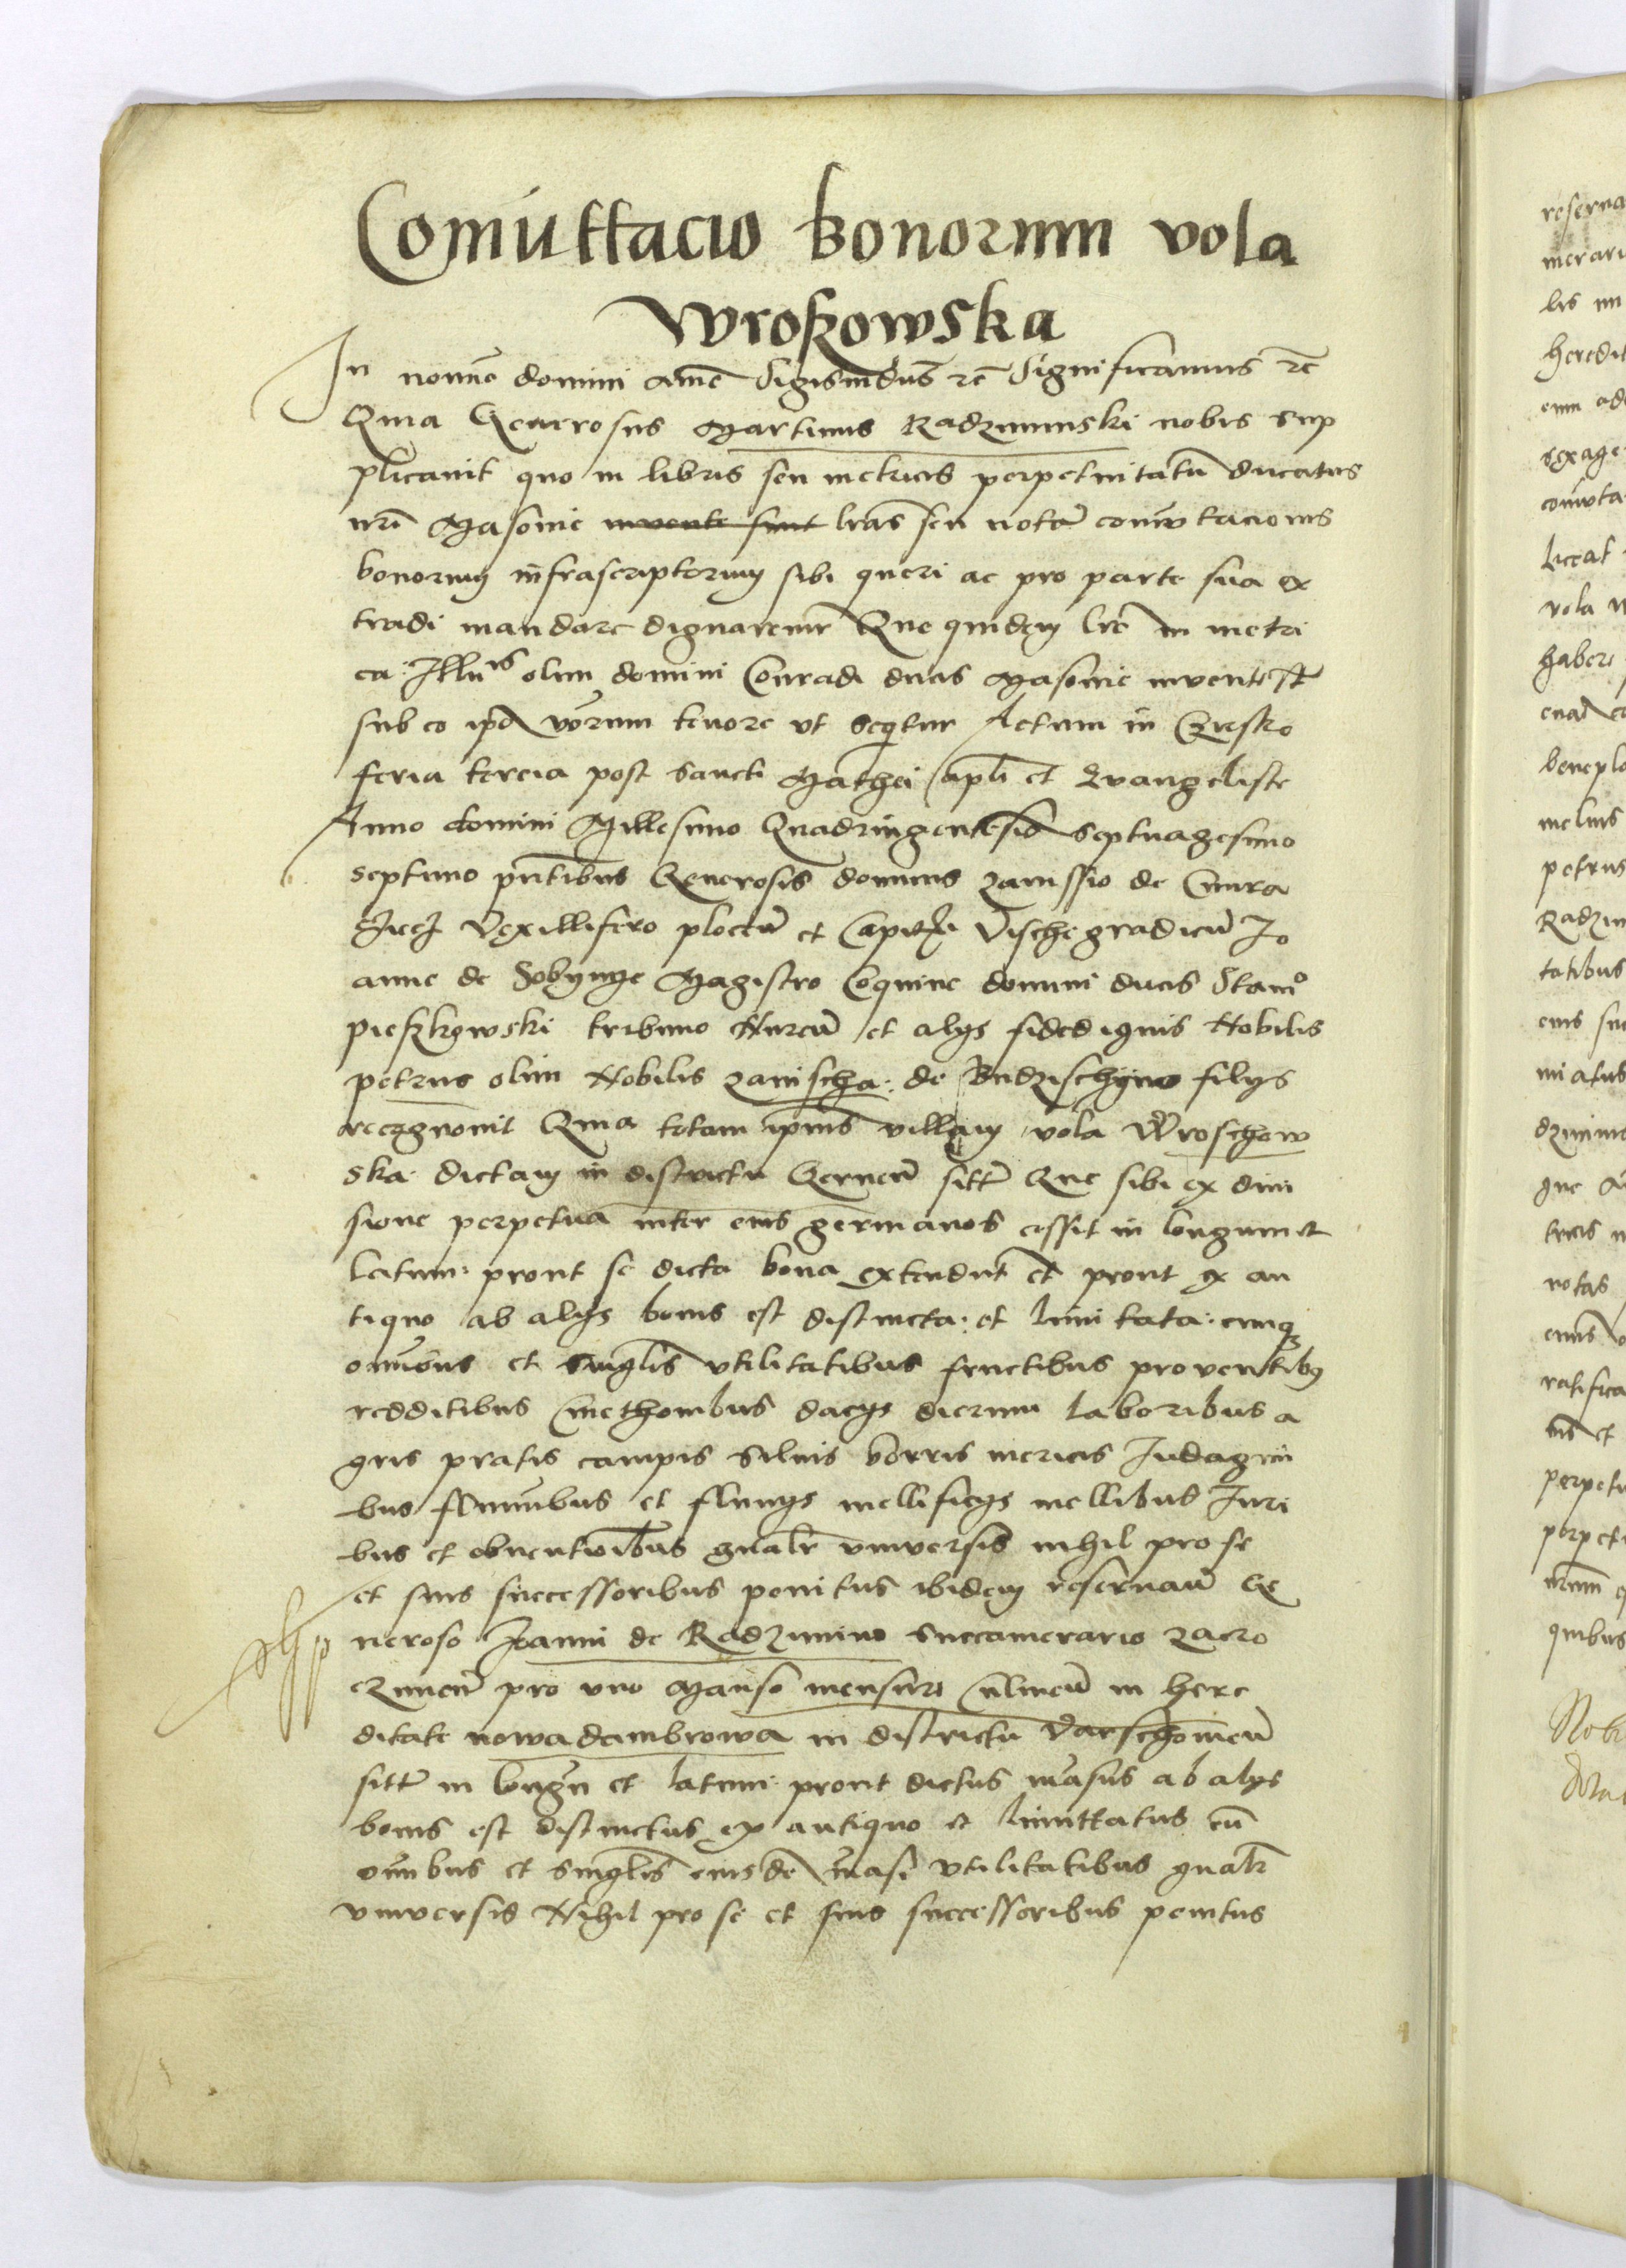 Comuttacio bonorum vola
Wroskowska
In nomine domini Ame Sigismdus rc Significamus rc
Quia Generosus Martinus Radzyminski nobis sup
plicavit quo in libris seu metricis perpetuitatu ducatus
nri Masovie invente sunt lras seu nota comutacionis
bonorum infrascriptorum sibi queri ac pro parte sua ex
tradi mandare dignaremr Que quidem lre in metri
ca Illmis olim domini Conradi ducis Masovie invente st
sub eo ipo verum tenore ut sequitur Actum in Czirsko
feria tercia post sancti Mathei apli et Evangeliste
Anno domini Millesimo Quadringentesio septuagesimo
septimo pntibus Generosis dominis zavissio de
vexillifero plocen et Capit Vischegradien Jo
anne de Sobynye Magistro Coquine domini ducis Stanio
pieskowski tribuno Nuren et alys fidedignis Nobilis
petrus olim Nobilis zavischa de Budzischyno filys
recognovit Quia totam ipius villam vola Wroschow
ska dictam in districtu Gernen sitt Que sibi ex divi
sione perpetua inter eius germanos cessit in longum et
latum prout se dicta bona extendut et prout ex an
tiquo ab alys bonis est distincta et limitata cumq
omibus et singlis utilitatibus fructibus proventibus
redditibus Cmethonibus dacys dierum laboribus a
gris pratis campis silvis borris mericis Indagini
bus fluminibus et fluvys mellificys mellibus Juri
bus et obventioibus gnalr universis nihil pro se
et suis successoribus penitus ibidem reservan Ge
neroso Joanni de Radzimino succamerario zacro
czimen pro uno Manso mensure Culmen in here
ditate nowadambrowa in districtu Varschovien
sitt in longu et latum prout dictus masus ab alys
bonis est distinctus ex antiquo et limittatus cu
omibus et singlis eiusde masi utilitatibus gnalr
universis Nihil pro se et suis successoribus penitus